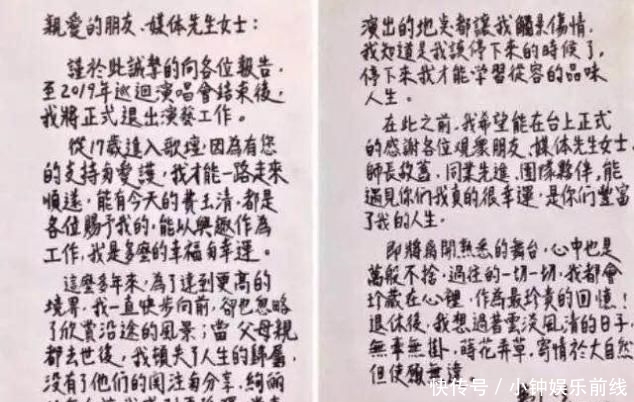 親愛的朋友、媒体先生女士：
謹於此誠摯的向各位報告，
至2019年巡迴演唱會結束後，
我將正式退出演藝工作。
從17歲進入歌壇，因為有您
的支持與愛護，我才能一路走來
順遂，能有今天的費玉清，都是
各位賜予我的，能以興趣作為
工作，我是多麼的幸福與幸運。
這麼多年來，為了達到更高的
境界，我一直快步向前，卻也忽略
了欣賞沿途的風景；當父母親
都去世後，我頓失了人生的歸屬，
沒有了他們的関注與分享，絢丽
演出的地点都讓我觸景傷情，
我知道是我該停下來的時候了，
停下來我才能学習從容的品味
人生。
在此之前，我希望能在台上正式
的感謝各位观眾朋友、媒体先生女士、
師長故舊、同業先進、團隊夥伴，能
遇見你们我真的很幸運，是你们豐富
了我的人生。
即將離開熟悉的舞台，心中也是
萬般不捨，過往的一切一切，我都會
珍藏在心裡，作為最珍貴的回憶！
退休後，我想過著雲淡風清的日子，
無牽無掛，蒔花弄草，寄情於大自然
但使願無違
快传号 / 小钟娱乐前线